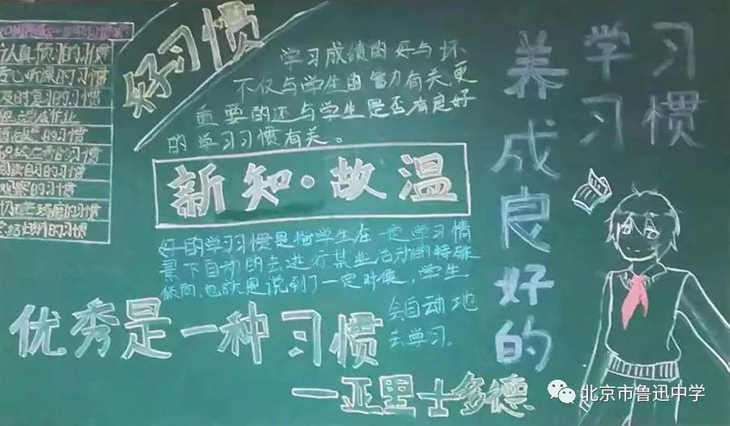 认真预习的习惯
专心听课的习惯
及时复习的习惯
作业
的习惯
的习惯
的习惯
观察的习惯
的习惯
的习惯
好习惯
学习成绩的好与坏
不仅与学生的智力有关更
重要的还与学生是否有良好
的学习习惯有关。
新知·故温
好的学习习惯是指学生在一定学习情
景下自动的去进行某些活动的特殊
倾向，也就是说到了一定时候，学生
会自动地
去学习
优秀是一种习惯
—亚里士多德
养成良好的
学习
习惯
北京市鲁迅中学